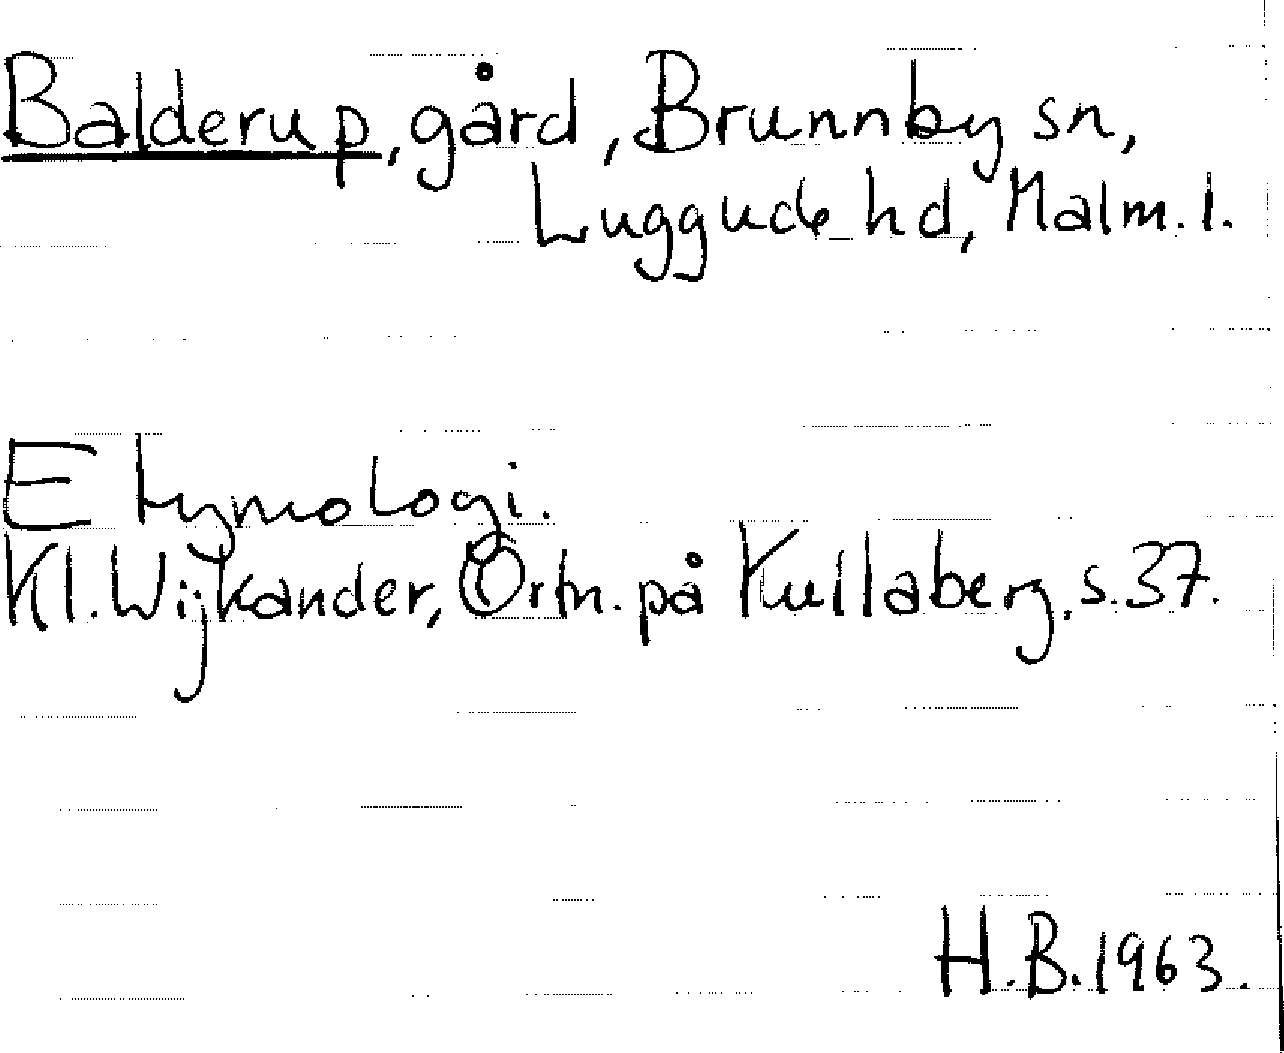 Balderup, gård, Brunnby sn,
Luggude hd, Malm. l.
Etymologi.
Kl. Wijkander, Ortn. på Kullaberg, s. 37.
H. B. 1963.